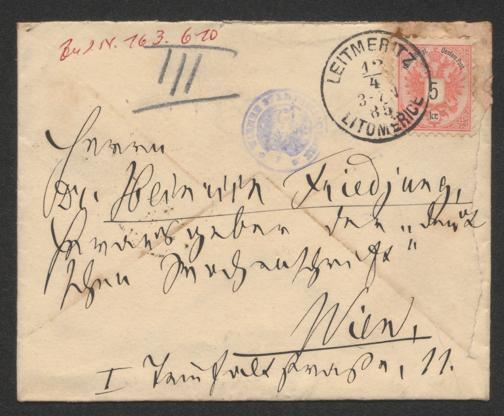 163.610
III
LEITMERITZ
12
4
85
LITOMĚŘICE
5
kr
Herrn
Dr. Heinrich Friedjung,
Herausgeber der „deut
schen Wochenschrift“
Wien,
I Teinfaltstraße, 11.